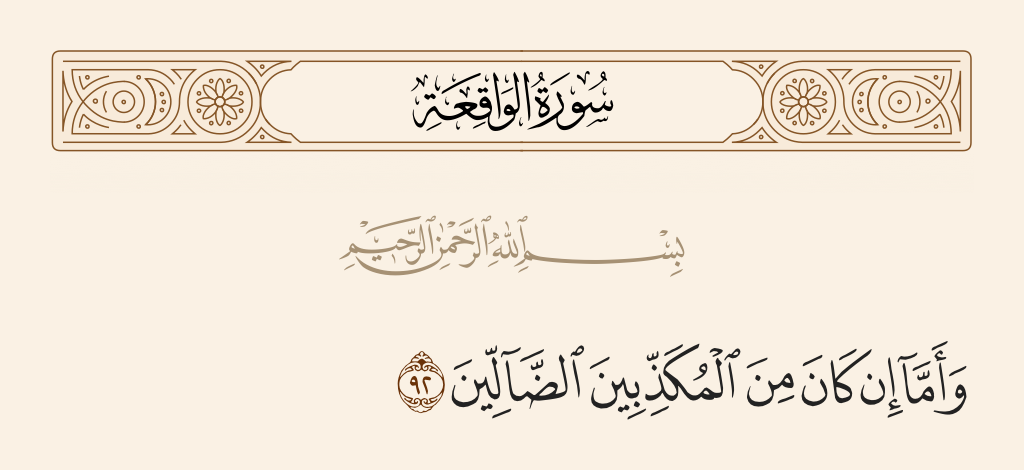 سُورَةُ الوَاقِعَةِ
بِسْمِ ٱللَّهِ ٱلرَّحْمَٰنِ ٱلرَّحِيمِ
وَأَمَّآ إِن كَانَ مِنَ ٱلْمُكَذِّبِينَ ٱلضَّآلِّينَ ٩٢